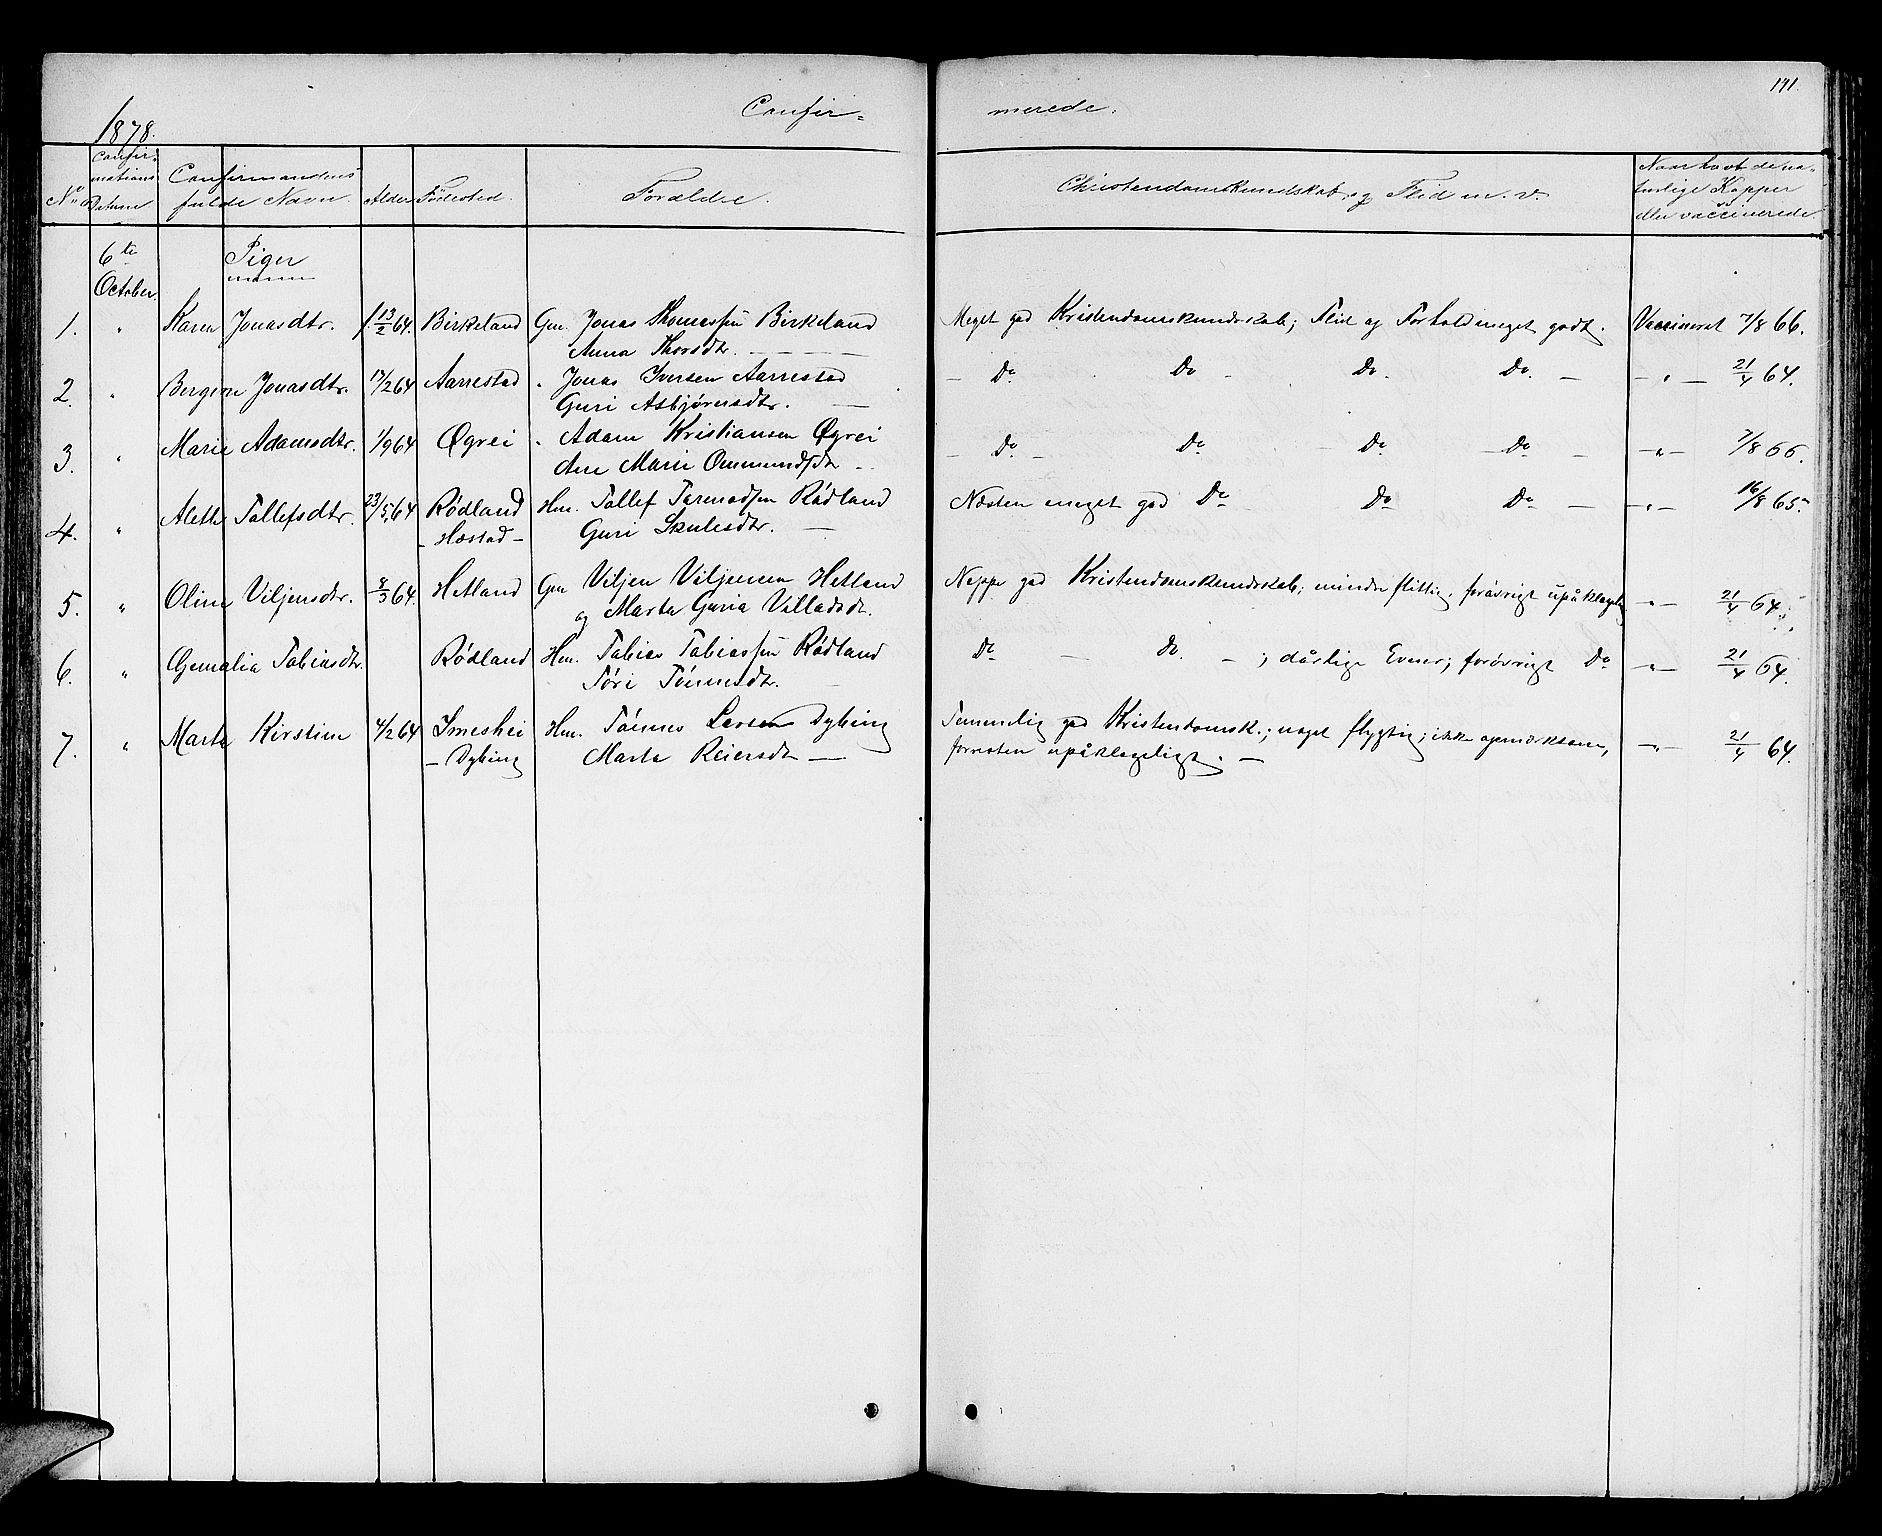 191.
Confir= merede.
1878.
No Confir- mations Datum Confirmandens fulde Navn Alder Födested. Forældre. Christendomskundskab, og Flid m. v. Naar havt de na- turlige Kopper eller vaccinerede
6te October. Piger
1. " Karen Jonasdtr. 13/2 64. Birkeland Gm. Jonas Thomassen Birkeland Meget god Kristendomskundskab; Flid og Forhold meget godt. Vaccineret 7/8 66.
Anna Thorsdtr. — — — —
2. " Bergine Jonasdtr. 17/2 64 Aarrestad " Jonas Iversen Aarrestad — Do Do — Do. Do. — — " — 21/4 64.
Guri Asbjörnsdtr. —
3. " Marie Adamsdtr. 1/9 64 Øgrei " Adam Kristiansen Øgrei — Do — Do Do — Do — — " — 7/8 66.
Ane Marie Ommundsdtr —
4. " Alethe Tollefsdtr. 23/5 64 Rödland Hm. Tollef Rödland Næsten meget god Do Do Do — — " — 16/8 65.
- Hæstad - Guri Skulesdtr. —
5. " Oline Viljensdtr. 8/3 64. Hetland Gm Viljen Viljensen Hetland Neppe god Kristendomskundskab; mindre flittig, forövrigt upåklagelig — " — 21/4 64.
og Marta Guria Villadsdt.
6. " Gemalia Tobiasdtr. Rödland Hm. Tobias Tobiassen Rödland Do — do. — ; dårlige Evner; forövrigt Do — " — 21/4 64.
Töri Tönnesdtr. —
7. " Marta Kirstine 4/2 64 Imeshei Hm. Tönnes Larsen Dybing Temmelig god Kristendomsk.; noget flygtig; ikke opmærksom, — " — 21/4 64.
- Dybing Marta Reiersdt — forresten upåklageligt. —